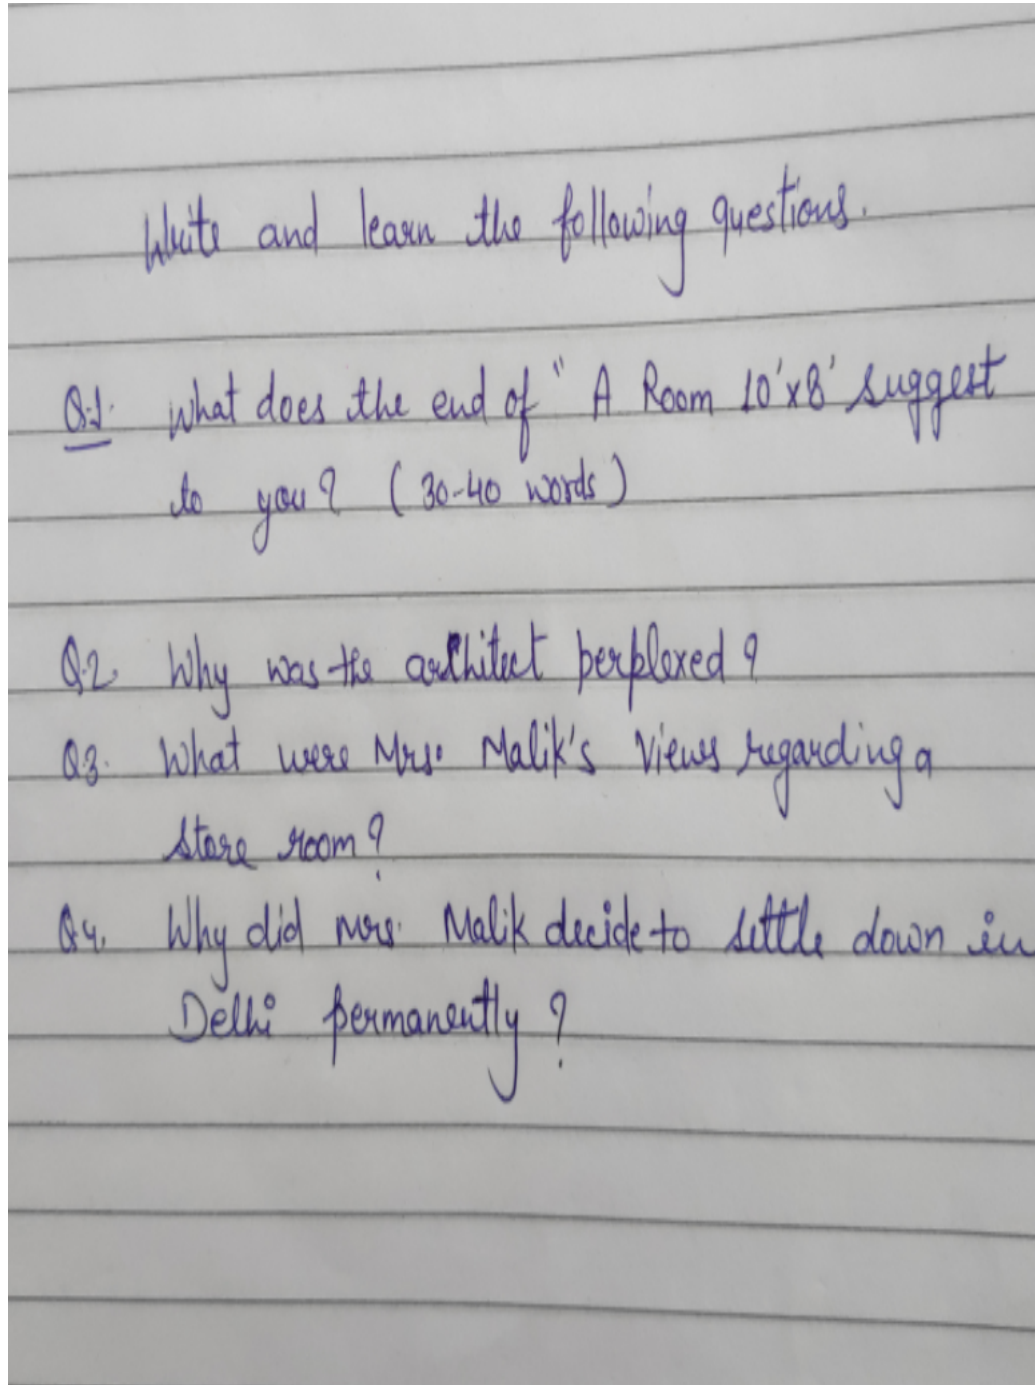 Write and learn the following questions.
Q.1. What does the end of " A Room 10'x8' suggest
to you? ( 30-40 words )
Q.2. Why was the architect perplexed ?
Q3. What were Mrs. Malik's Views regarding a
store room?
Q4. Why did mrs. Malik decide to settle down in
Delhi permanently ?